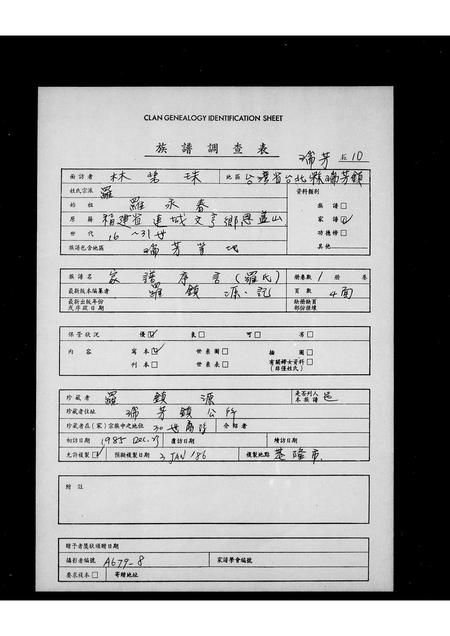 CLAN GENEALOGY IDENTIFICATION SHEET
族譜調查表
瑞芳 10
面訪者 林 珠 地區 台灣省台北縣瑞芳鎮
姓氏宗派 羅 資料類別
始祖 羅永春 族譜
原籍 福建省連城文亨鄉 山 家譜
世代 16~31世 功德榜
族譜包含地區 瑞芳等地 其他
族譜名 家譜序言(羅氏) 冊卷數 1 冊 卷
最新版本編纂者 羅鎮源 記 頁數 4面
最新出版年份或序跋日期 缺冊缺頁部份損壞
保管狀況 優 良 可 劣
內容 寫本 世系圖 插圖
刊本 世系表 有關婦女資料(非僅姓氏)
珍藏者 羅鎮源 是否列入本族譜 是
珍藏者住址 瑞芳鎮公所
珍藏者在(家)宗族中之地位 30世裔孫 介紹者
初訪日期 1985 Dec. 23 覆訪日期 續訪日期
允許複製 預擬複製日期 3 JAN '86 複製地點 基隆市
附註
贈予者獎狀頒贈日期
攝影者編號 A679-8 家譜學會編號
要求複本 寄贈地址